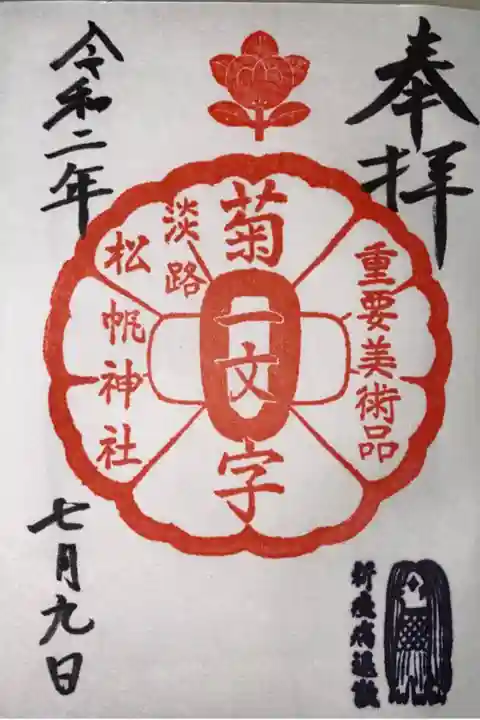 奉拝
重要美術品
菊一文字
淡路
松帆神社
令和二年
七月九日
祈疫病退散